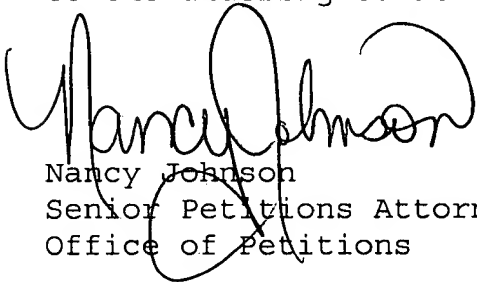 Nancy Johnson
Nancy Johnson
Senior Petitions Attor
Office of Petitions